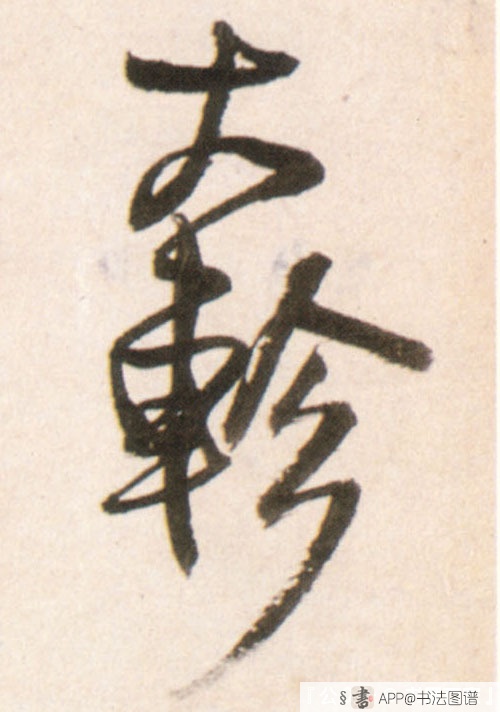 軫
書 APP@书法图谱